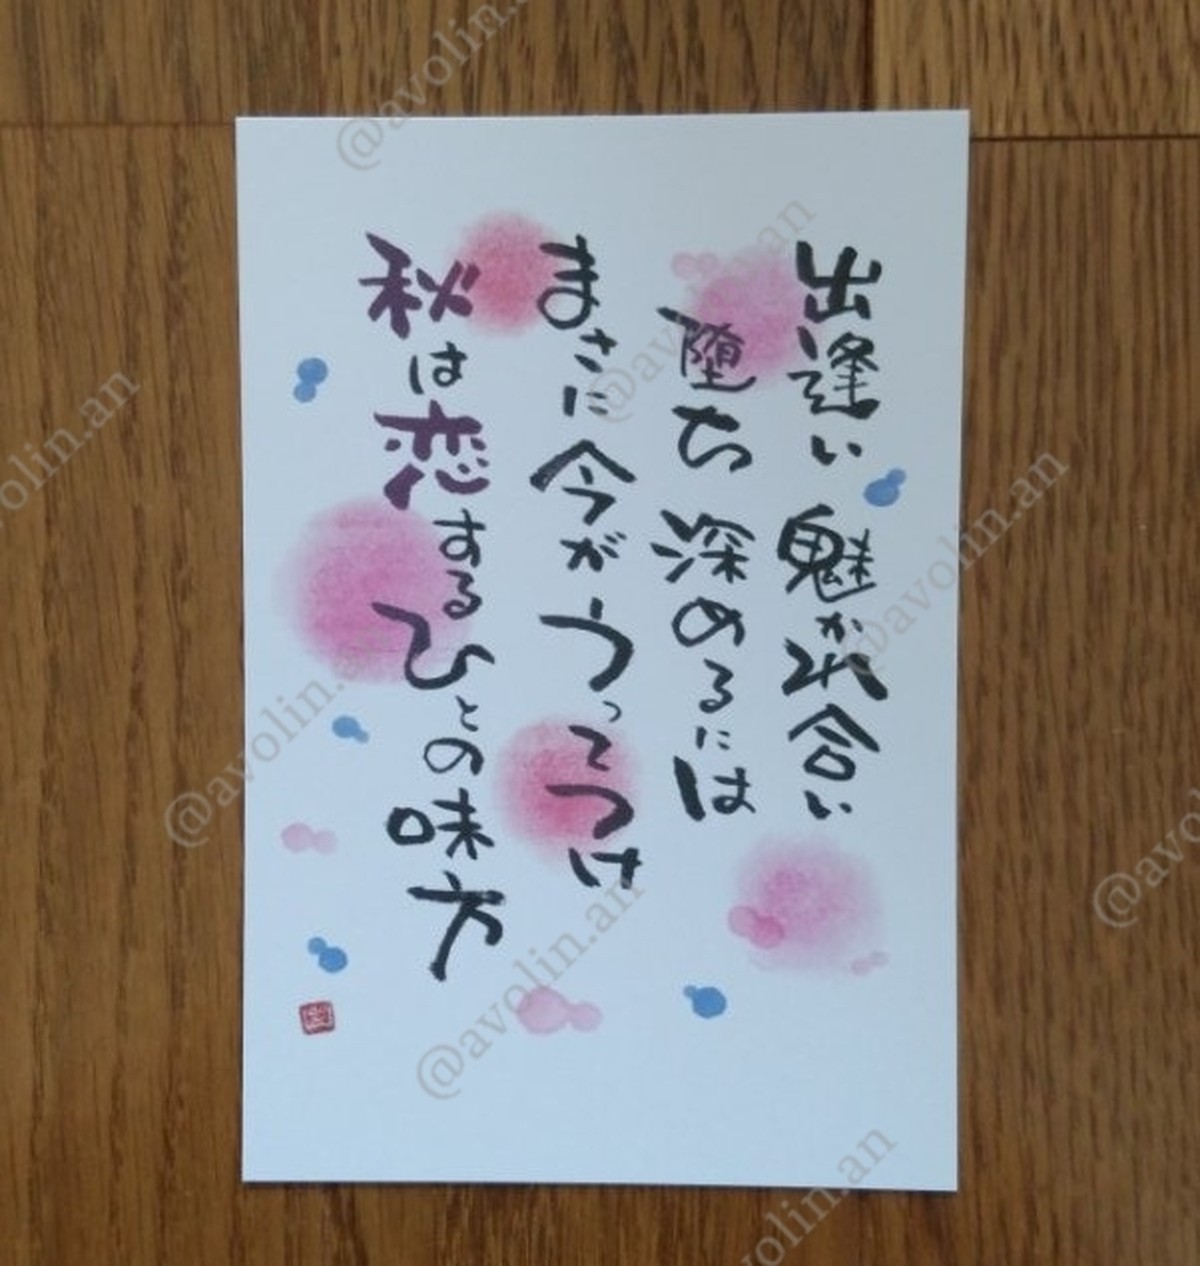 出逢い 魅かれ合い
堕ち 深めるには
まさに今がうってつけ
秋は恋するひとの味方
@avolin.an
@avolin.an
@avolin.an
@avolin.an
@avolin.an
@avolin.an
@avolin.an
@avolin.an